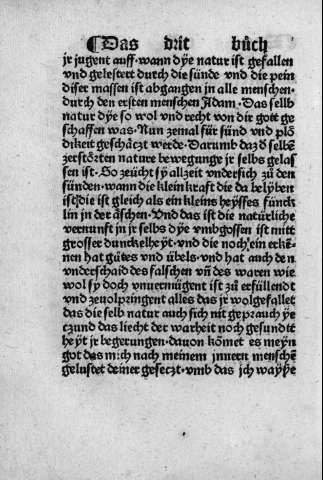 ¶Das drit bůch
jr jugent auff·wann dÿe natur ist gefallen
vnd gelestert durch die sünde vnd die pein
diser massen ist abgangen in alle menschen·
durch den ersten menschen Adam·Das selb
natur dÿe so wol vnd recht von die gott ge
schaffen was·Nun zemal für sünd vnd plö
dikeit geschäczt werde·Darumb daz d̕ selbē
zerstörten nature bewegunge jr selbs gelas
sen ist·So zeücht sy allzeit vndersich zů den
sünden·wann die klein kraft die da belyben
ist die ist gleich als ein kleins heysses fünck
lin in der äschen·Vnd das ist die natürliche
vernunft jn jr selbs dÿe vmbgossen ist mitt
grosser dunckelheÿt·vnd die noch ein erkē-
nen hat gůtes vnd übels·vnd hat auch den
vnderschaid des falschen vn̄ des waren wie
wol sy doch vnuermügent ist zů erfüllend
vnd zeuolpringent alles das jr wolgefallet
das die selb natur auch sich nit geprauch ÿe
czund das liecht der warheit noch gesundt
heÿt jr begerungen·dauon kōmet es meyn
got das mich nach meinem innern menschē
gelustet deiner gesecze·vmb das jch waÿße